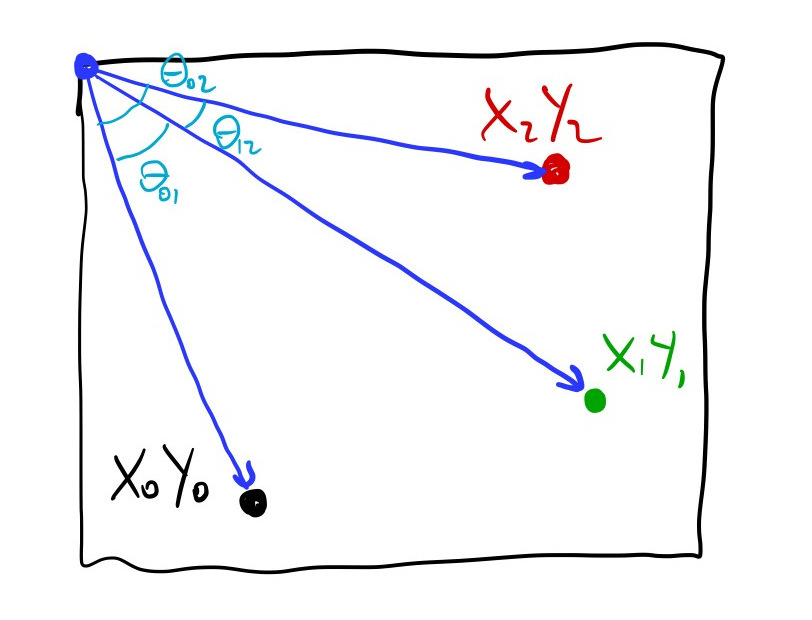 θ02
X2Y2
θ12
θ01
X1Y1
X0Y0